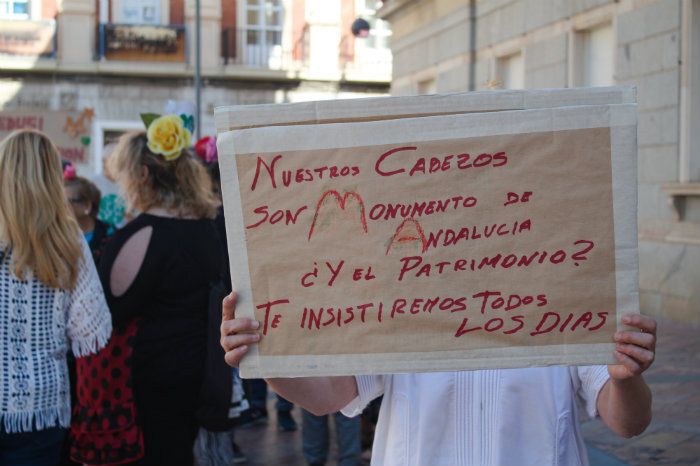 Nuestros Cabezos
son Monumento de
Andalucia
¿Y el Patrimonio?
Te insistiremos todos
los dias